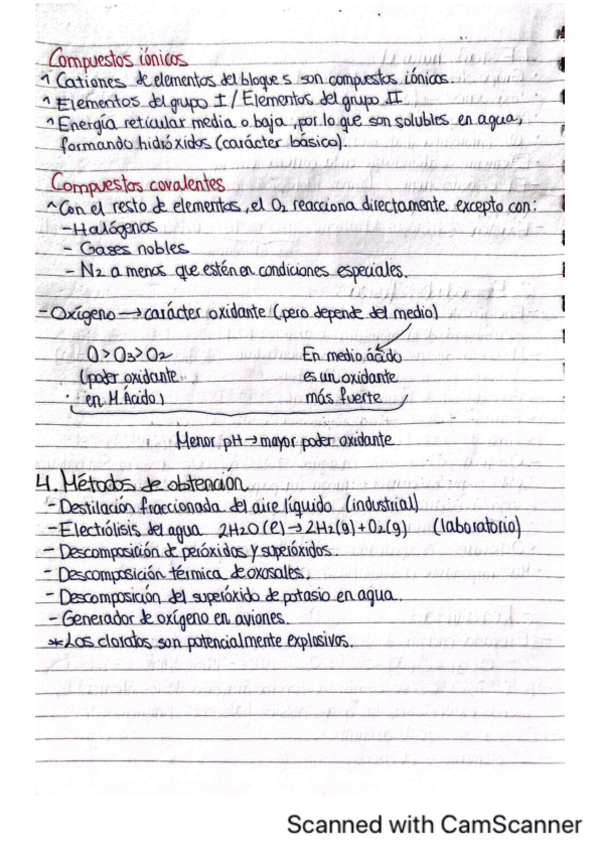 Compuestos iónicos
^ Cationes de elementos del bloque s son compuestos iónicos.
^ Elementos del grupo I / Elementos del grupo II
^ Energía reticular media o baja, por lo que son solubles en agua,
formando hidróxidos (carácter básico).
Compuestos covalentes
^ Con el resto de elementos, el O2 reacciona directamente excepto con:
- Halógenos
- Gases nobles
- N2 a menos que estén en condiciones especiales.
- Oxígeno → carácter oxidante (pero depende del medio)
O > O3 > O2
(poder oxidante
en M. Ácido)
En medio ácido
es un oxidante
más fuerte
Menor pH → mayor poder oxidante
4. Métodos de obtención
- Destilación fraccionada del aire líquido (industrial)
- Electrólisis del agua 2H2O(l) → 2H2(g) + O2(g) (laboratorio)
- Descomposición de peróxidos y superóxidos.
- Descomposición térmica de oxosales.
- Descomposición del superóxido de potasio en agua.
- Generador de oxígeno en aviones.
* Los cloratos son potencialmente explosivos.
Scanned with CamScanner